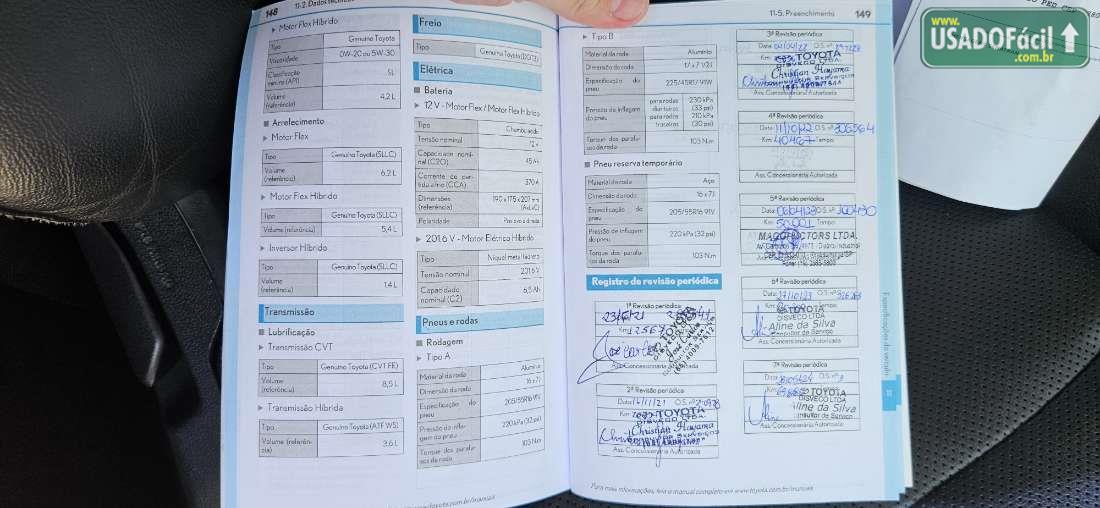 148
11-2. Dados técnicos
Motor Flex Híbrido
Tipo Genuíno Toyota
Viscosidade 0W-20 ou 5W-30
Classificação mínima (API) SL
Volume (referência) 4,2 L
Arrefecimento
Motor Flex
Tipo Genuíno Toyota (SLLC)
Volume (referência) 6,2 L
Motor Flex Híbrido
Tipo Genuíno Toyota (SLLC)
Volume (referência) 5,4 L
Inversor Híbrido
Tipo Genuíno Toyota (SLLC)
Volume (referência) 1,4 L
Transmissão
Lubrificação
Transmissão CVT
Tipo Genuíno Toyota (CVT FE)
Volume (referência) 8,5 L
Transmissão Híbrida
Tipo Genuíno Toyota (ATF WS)
Volume (referência) 3,6 L
Freio
Tipo Genuíno Toyota (DOT3)
Elétrica
Bateria
12 V - Motor Flex / Motor Flex Híbrido
Tipo Chumbo ácido
Tensão nominal 12 V
Capacidade nominal (C20) 45 Ah
Corrente de partida a frio (CCA) 370 A
Dimensões (referência) 190 x 175 x 207 mm (AxLxC)
Polaridade
201.6 V - Motor Elétrico Híbrido
Tipo Níquel metal hidreto
Tensão nominal 201.6 V
Capacidade nominal (C2) 6,5 Ah
Pneus e rodas
Rodagem
Tipo A
Material da roda Alumínio
Dimensão da roda 16 x 7 J
Especificação do pneu 205/55R16 91V
Pressão de inflagem do pneu 220 kPa (32 psi)
Torque dos parafusos da roda 103 N.m
11-5. Preenchimento
149
Tipo B
Material da roda Alumínio
Dimensão da roda 17 x 7 1/2 J
Especificação do pneu 225/45R17 91W
Pressão de inflagem do pneu
para rodas dianteiras 230 kPa (33 psi)
para rodas traseiras 210 kPa (30 psi)
Torque dos parafusos da roda 103 N.m
Pneu reserva temporário
Material da roda Aço
Dimensão da roda 16 x 7 J
Especificação do pneu 205/55R16 91V
Pressão de inflagem do pneu 220 kPa (32 psi)
Torque dos parafusos da roda 103 N.m
Registro de revisão periódica
1ª Revisão periódica
Km
TOYOTA
Ass. Concessionária Autorizada
2ª Revisão periódica
Data: 16/11/21 O.S. nº
Km
TOYOTA
Christian Hayama
Ass. Concessionária Autorizada
3ª Revisão periódica
Data: O.S. nº
Km
TOYOTA
Christian Hayama
Ass. Concessionária Autorizada
4ª Revisão periódica
Data: 11/10/22 O.S. nº 306564
Km: 40467 Tempo:
Ass. Concessionária Autorizada
5ª Revisão periódica
Data: O.S. nº
Km: Tempo
LTDA.
6ª Revisão periódica
Data: 27/10/23 O.S. nº
Km Tempo
TOYOTA
DISVECO LTDA
Aline da Silva
Consultor de Serviço
Ass. Concessionária Autorizada
7ª Revisão periódica
Data: O.S. nº
Km
TOYOTA
DISVECO LTDA
Aline da Silva
Consultor de Serviço
Ass. Concessionária Autorizada
Especificações do veículo
11
Para mais informações, leia o manual completo em www.toyota.com.br/manuais
www.
USADOFácil
.com.br